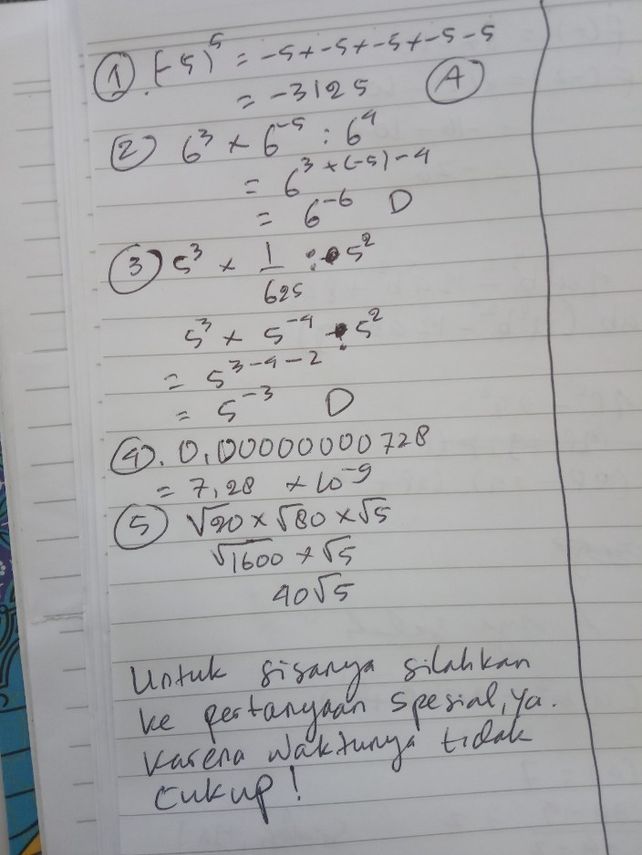 ① (-5)⁵ = -5 × -5 × -5 × -5 - 5
= -3125 Ⓐ
② 6³ × 6⁻⁵ : 6⁴
= 6³ ⁺ ⁽⁻⁵⁾ ⁻ ⁴
= 6⁻⁶ D
③ 5³ × 1/625 : 5²
5³ × 5⁻⁴ : 5²
= 5³⁻⁴⁻²
= 5⁻³ D
④. 0,00000000728
= 7,28 × 10⁻⁹
⑤ √20 × √80 × √5
√1600 × √5
40√5
Untuk sisanya silahkan
ke pertanyaan spesial, ya.
Karena waktunya tidak
cukup!